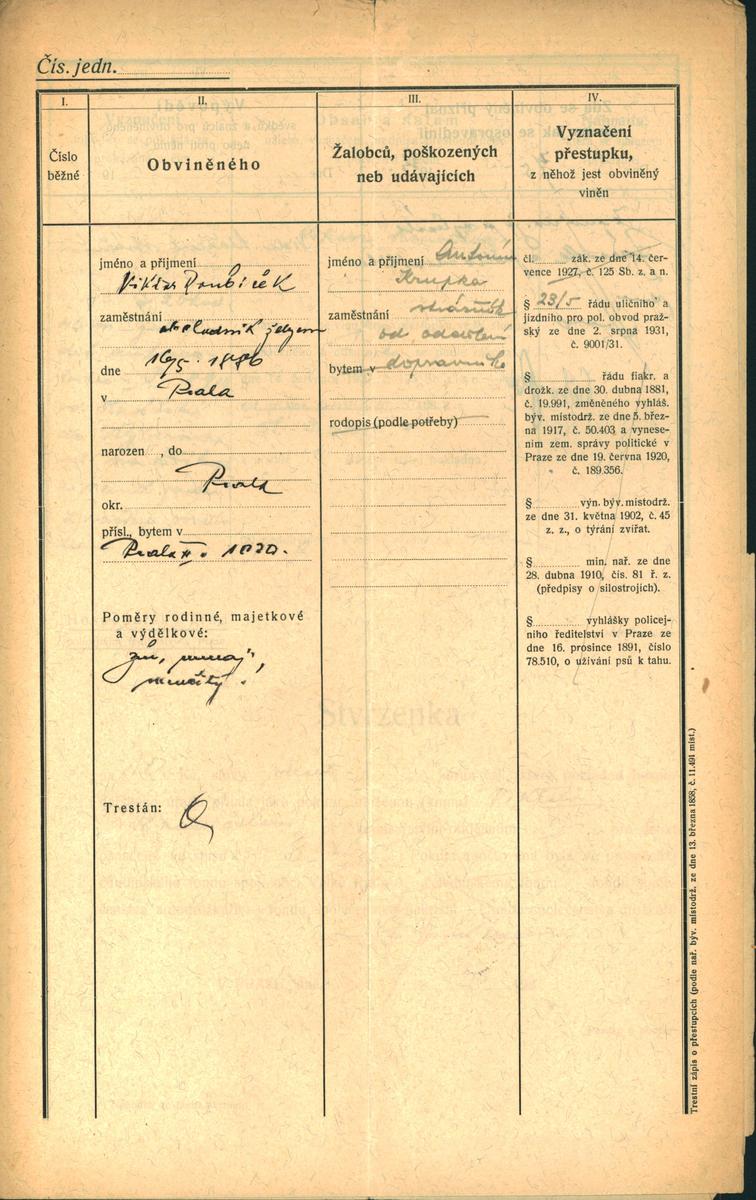 Čís. jedn.
I.
Číslo
běžné
II.
Obviněného
jméno a přijmení
Viktor Doubíček
zaměstnání
obchodník
dne 16/5. 1886
v Praha
narozen , do
Praha
okr.
přísl., bytem v
Praha II. 1020.
Poměry rodinné, majetkové
a výdělkové:
žen,
Trestán:
III.
Žalobců, poškozených
neb udávajících
jméno a přijmení Antonín
Krupka
zaměstnání strážník
od oddělení
bytem v dopravního
rodopis (podle potřeby)
IV.
Vyznačení
přestupku,
z něhož jest obviněný
viněn
čl. zák. ze dne 14. čer-
vence 1927, č. 125 Sb. z. a n.
§ 23/5 řádu uličního a
jízdního pro pol. obvod praž-
ský ze dne 2. srpna 1931,
č. 9001/31.
§ řádu fiakr. a
drožk. ze dne 30. dubna 1881,
č. 19.991, změněného vyhláš.
býv. místodrž. ze dne 5. břez-
na 1917, č. 50.403 a vynese-
ním zem. správy politické v
Praze ze dne 19. června 1920,
č. 189.356.
§ výn. býv. místodrž.
ze dne 31. května 1902, č. 45
z. z., o týrání zvířat.
§ min. nař. ze dne
28. dubna 1910, čís. 81 ř. z.
(předpisy o silostrojích).
§ vyhlášky policej-
ního ředitelství v Praze ze
dne 16. prosince 1891, číslo
78.510, o užívání psů k tahu.
Trestní zápis o přestupcích (podle nař. býv. místodrž. ze dne 13. března 1858, č. 11.491 míst.)
Stvrzenka